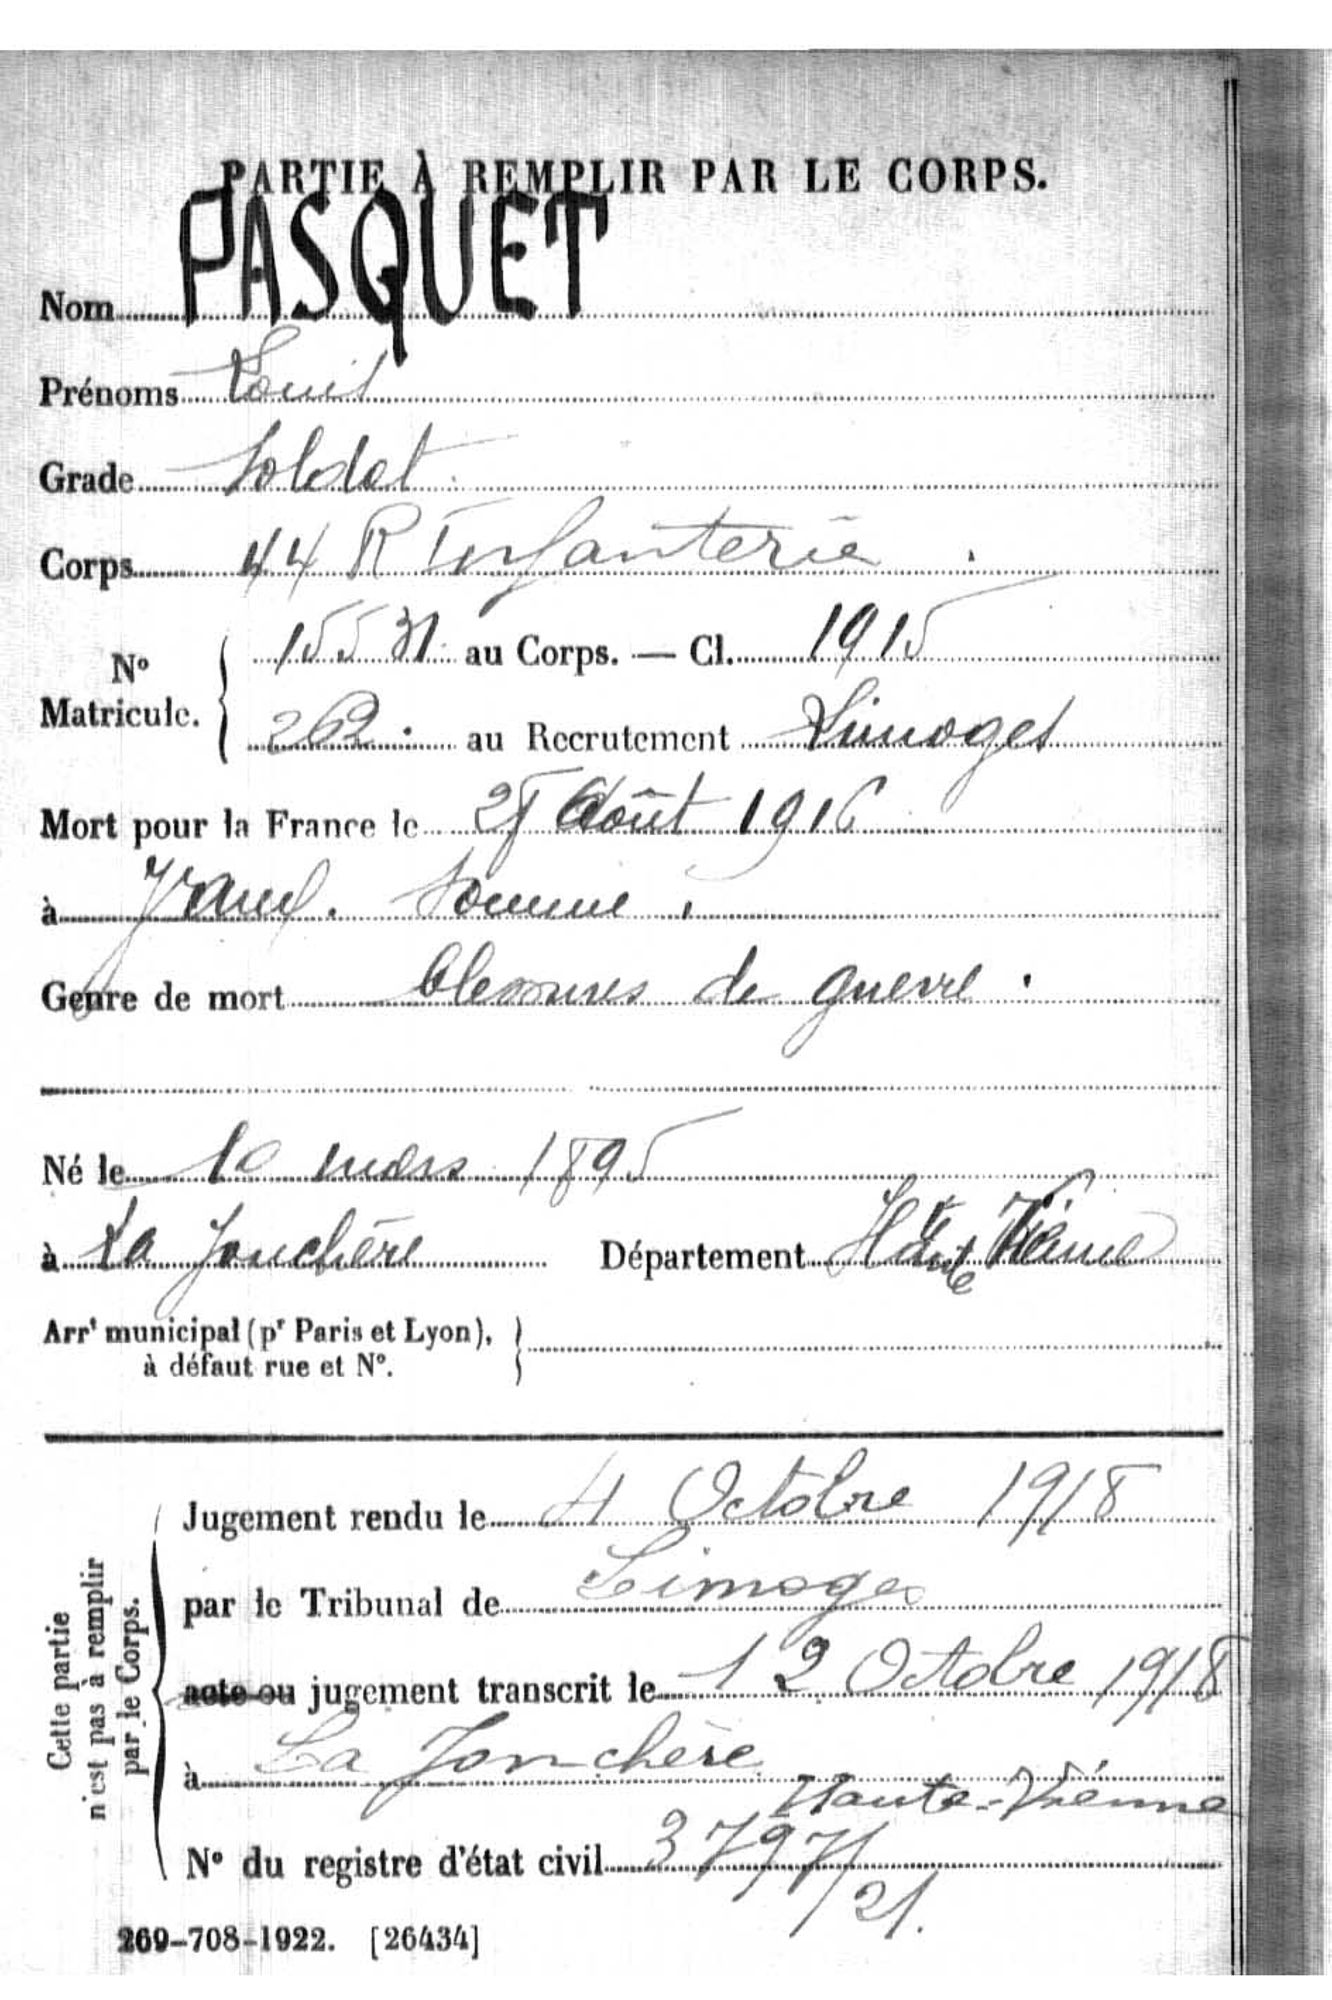 PARTIE À REMPLIR PAR LE CORPS.
Nom PASQUET
Prénoms Louis
Grade Soldat
Corps 44 R Infanterie
N° Matricule. 15531 au Corps. — Cl. 1915
262. au Recrutement Limoges
Mort pour la France le Août 1916
à Somme
Genre de mort blessures de guerre.
Né le 10 mars 1895
à La Jonchère Département Haute Vienne
Arrt municipal (pr Paris et Lyon),
à défaut rue et N°.
Cette partie
n'est pas à remplir
par le Corps.
Jugement rendu le 4 Octobre 1918
par le Tribunal de Limoges
acte ou jugement transcrit le 12 Octobre 1918
à La Jonchère
Haute-Vienne
N° du registre d'état civil 3797/21.
269-708-1922. [26434]